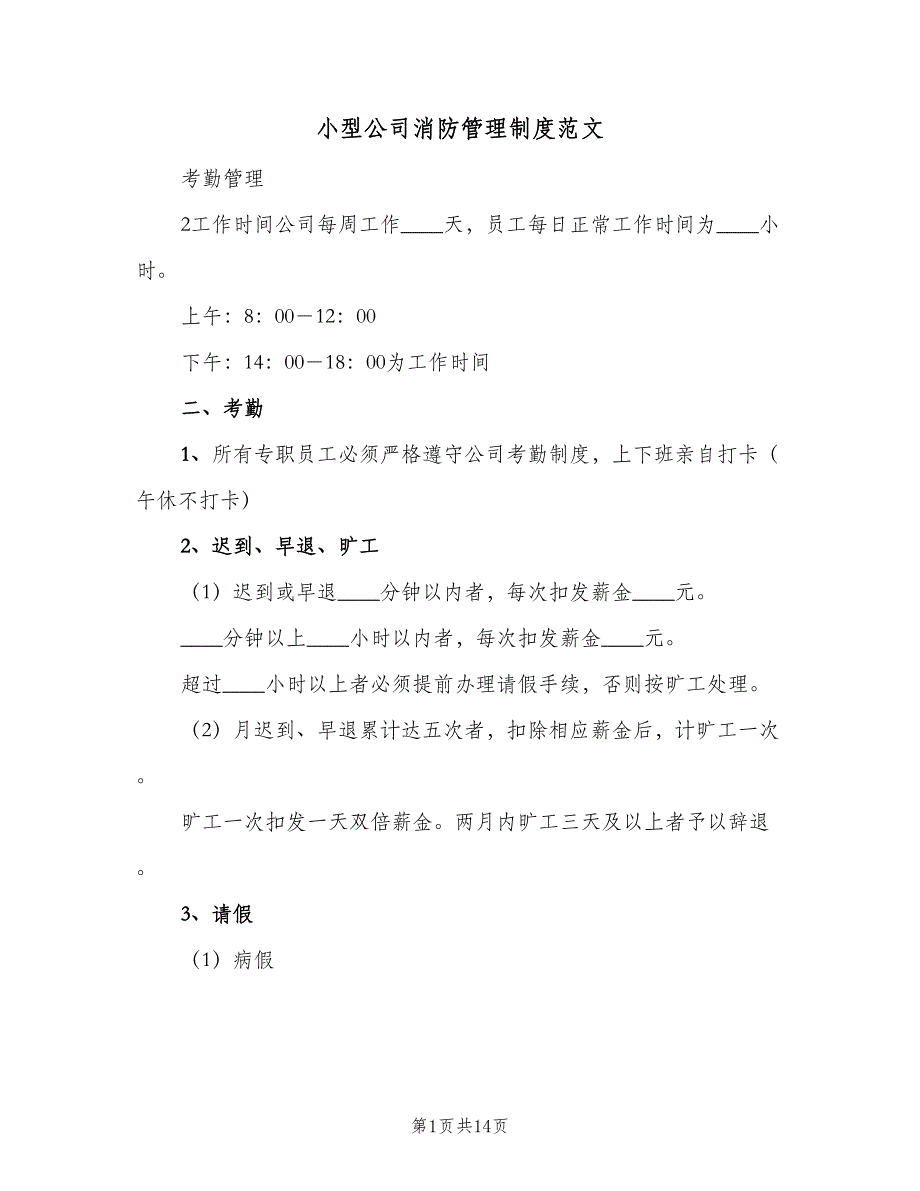 小型公司消防管理制度范文
考勤管理
2工作时间公司每周工作____天，员工每日正常工作时间为____小
时。
上午：8：00－12：00
下午：14：00－18：00为工作时间
二、考勤
1、所有专职员工必须严格遵守公司考勤制度，上下班亲自打卡（
午休不打卡）
2、迟到、早退、旷工
（1）迟到或早退____分钟以内者，每次扣发薪金____元。
____分钟以上____小时以内者，每次扣发薪金____元。
超过____小时以上者必须提前办理请假手续，否则按旷工处理。
（2）月迟到、早退累计达五次者，扣除相应薪金后，计旷工一次
。
旷工一次扣发一天双倍薪金。两月内旷工三天及以上者予以辞退
。
3、请假
（1）病假
第1页共14页